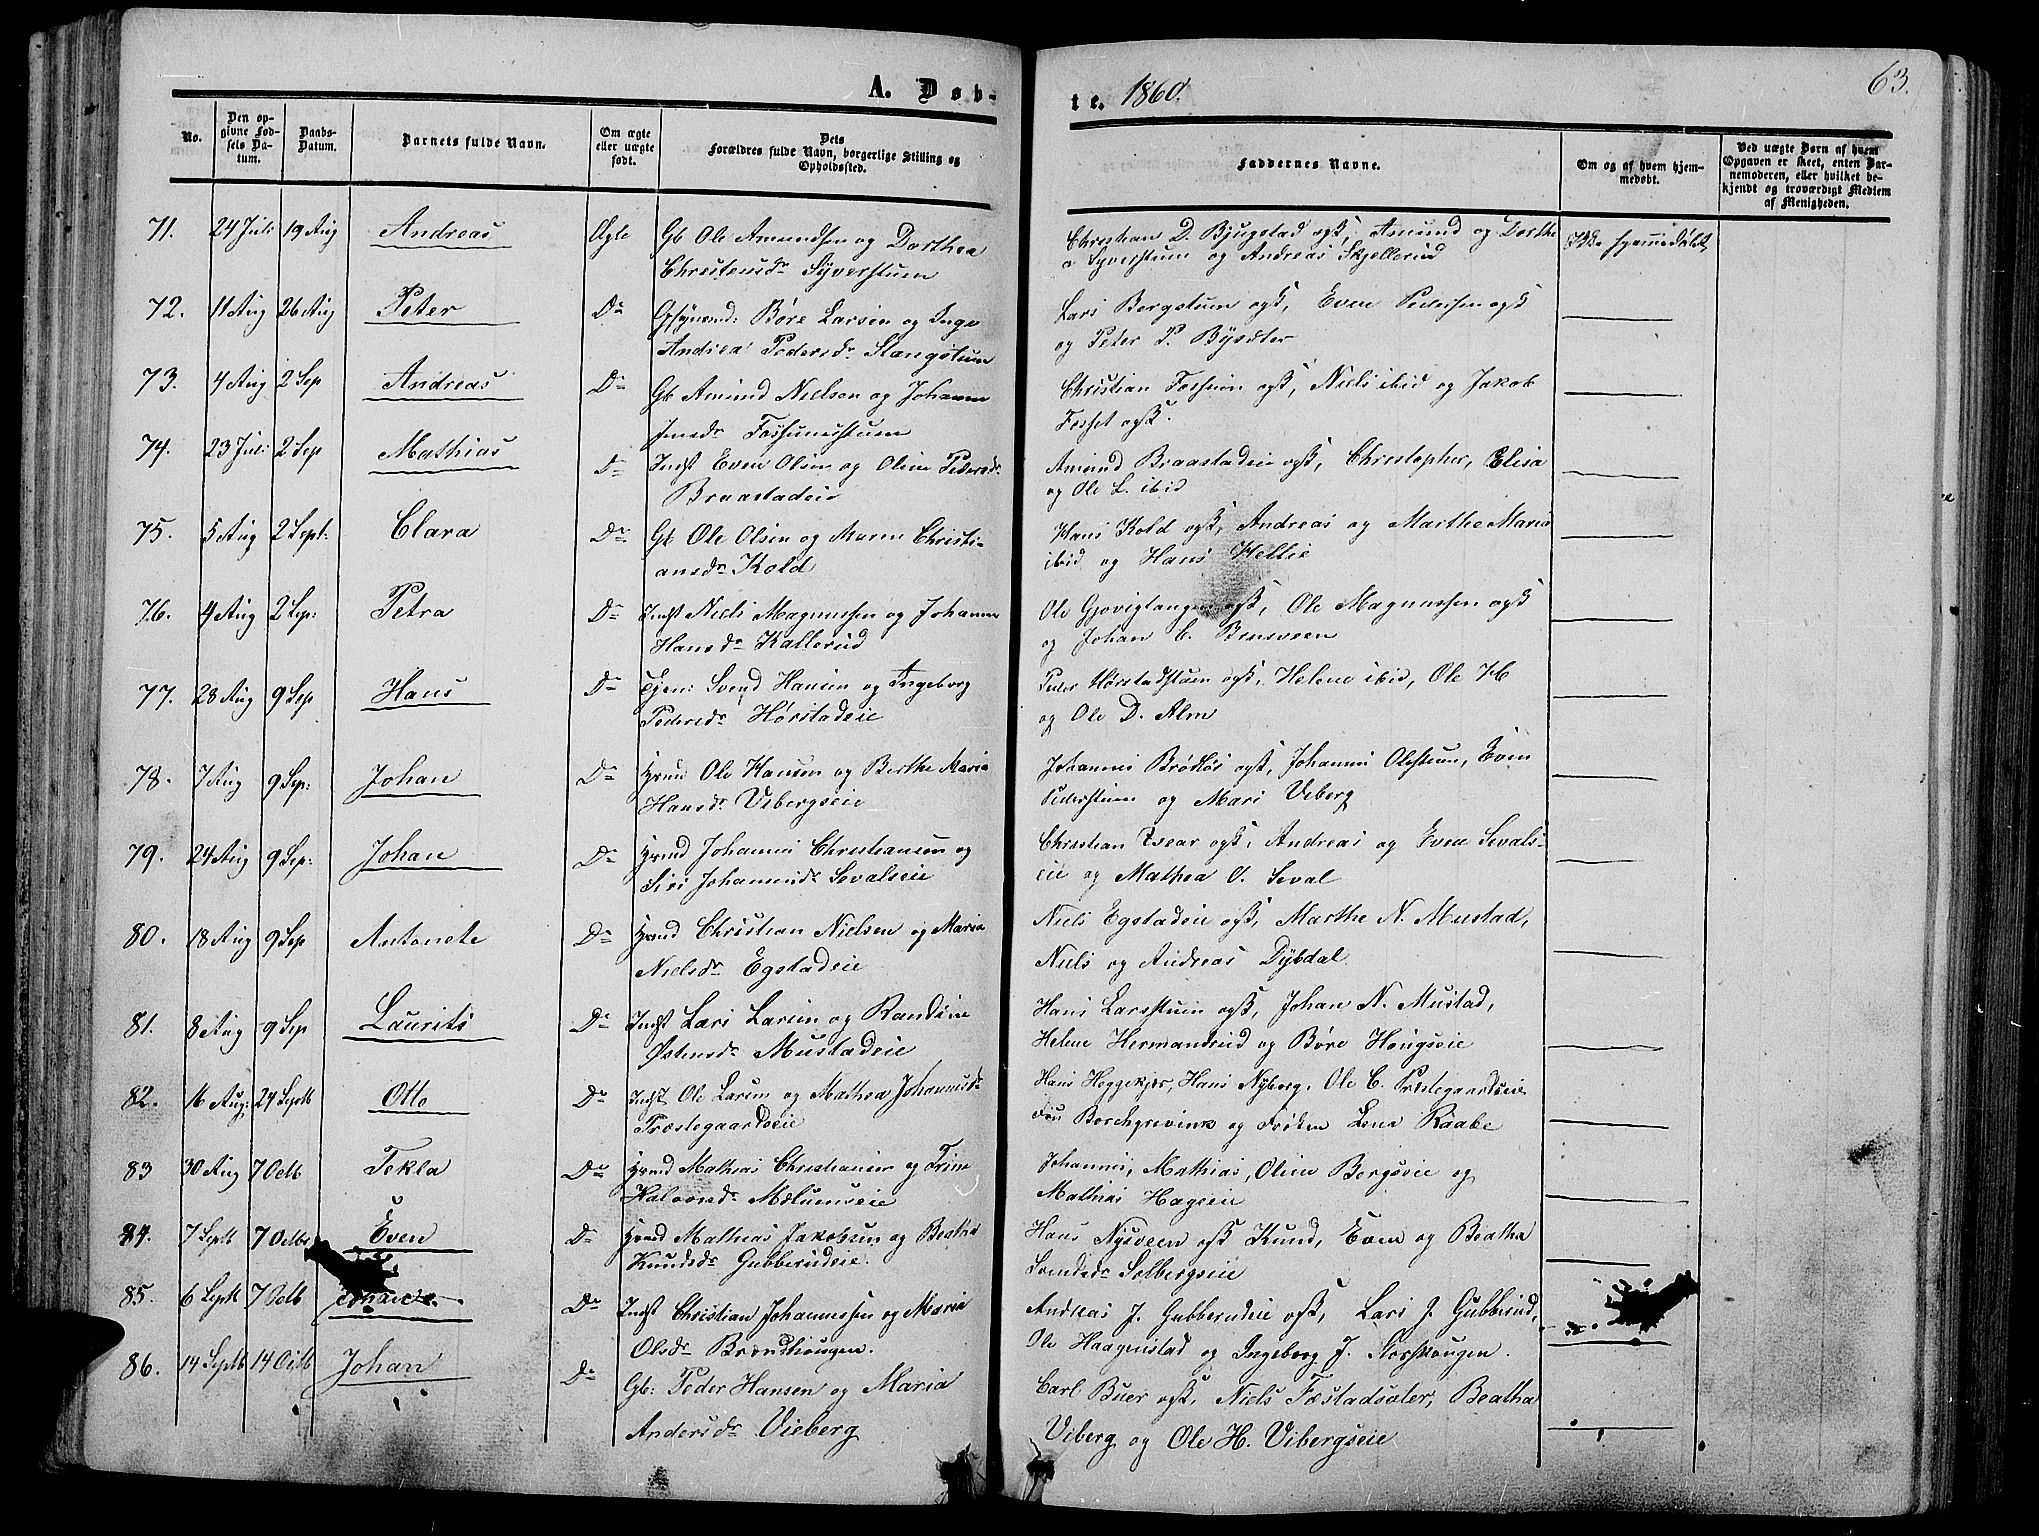 A. Døb-
te. 1860.
63.
No.
Den op-
givne Fød-
sels Da-
tum.
Daabs-
Datum.
Barnets fulde Navn.
Om ægte
eller uægte
født.
Dets
Forældres fulde Navn, borgerlige Stilling og
Opholdssted.
Faddernes Navne.
Om og af hvem hjem-
medøbt.
Ved uægte Børn af hvem
Opgaven er skeet, enten Bar-
nemoderen, eller hvilket be-
kjendt og troværdigt Medlem
af Menigheden.
71. 24 Juli 19 Aug Andreas Ægte Gb Ole Amundsen og Dorthea
Christensdr Syverstuen
Christian D. Bjugstad og k, Amund og Dorthe
a Syverstuen og Andreas Skjellerud
Ikke hjemmedøbt
72. 11 Aug 26 Aug Peter Do Børe Larsen og Inge
Andrea Pedersdr Slangstuen
Lars Bergstuen og k, Even Pedersen og k
og Peter P.
73. 4 Aug 2 Sep Andreas Do Gb Amund Nielsen og Johanne
Jensdr Fossumstuen
Christian Fossum og k, Niels ibid og Jakob
Fosset og k.
74. 23 Juli 2 Sep Mathias Do Indst Even Olsen og Oline Pedersdr
Braastadeie
Amund Braastadeie og k, Christopher, Elisa
og Ole L. ibid
75. 5 Aug 2 Sept: Clara Do Gb Ole Olsen og Maren Christi-
ansdr Kold
Hans Kold og k, Andreas og Marthe Maria
ibid og Hans Hellie
76. 4 Aug 2 Sep: Petra Do Indst Niels Magnussen og Johanne
Hansdr Kallerud
Ole Gjøvigtangen og k, Ole Magnussen og k
og Johan C. Brusveen
77. 28 Aug 9 Sep Hans Do Ejen: Svend Hansen og Ingeborg
Pedersdr Hørstadeie
Peder Hørstadstuen og k, Helene ibid, Ole H
og Ole D. Alm
78. 7 Aug 9 Sep: Johan Do Hmd Ole Hansen og Berthe Maria
Hansdr Vibergseie
Johannes Brødløs og k, Johannes Olestuen, Even
Pederstuen og Mari Viberg
79. 24 Aug 9 Sep: Johan Do Hmd Johannes Christiansen og
Siri Johannesdr Sevalseie
Christian Tvear og k, Andreas og Even Sevals-
eie og Mathea O. Seval
80. 18 Aug 9 Sep Antonete Do Hmd Christian Nielsen og Maria
Nielsdr Egstadeie
Niels Egstadeie og k, Marthe N. Mustad,
Niels og Andreas Dybdal
81. 8 Aug 9 Sep Laurits Do Indst Lars Larsen og Randine
Østensdr Mustadeie
Hans Larsstuen og k, Johan N. Mustad,
Helene Hermandrud og Børe Hongseie
82. 16 Aug: 24 Septb Otto Do Indst Ole Larsen og Mathea Johannesdr
Præstegaardseie
Hans Heggekjær, Hans Nyberg, Ole C. Præstegaardseie
Fru Borchgrevink og Frøken Lene Raabe
83 30 Aug 7 Octb Tekla Do Hmd Mathias Christiansen og Trine
Halvorsdr Mælumseie
Johannes, Mathias, Oline Bergseie og
Mathias Hageeie
84. 7 Septb 7 Octbr Even Do Hmd Mathias Jakobsen og Beathe
Knudsdr Gubberudeie.
Hans Nysveen og k Knud, Even og Beatha
Svendsdr Solbergseie
85. 6 Septb 7 Octb Do Indst Christian Johannessen og Maria
Olsdr Brændhougen.
Andreas J. Gubberudeie og k, Lars J. Gubberud,
Ole Haagenstad og Ingeborg J. Korshougen.
86. 14 Septb 14 Octb Johan Do Gb: Peder Hansen og Maria
Andersdr Vieberg
Carl Buer og k, Niels Fæstadsæter, Beatha
Viberg og Ole H. Vibergseie